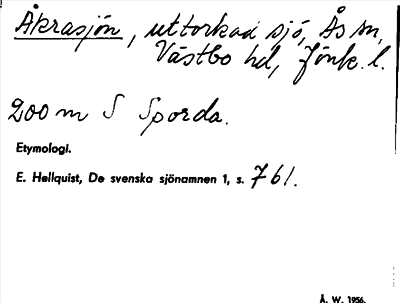 Åkrasjön, uttorkad sjö, Ås sn,
Västbo hd, Jönk. l.
200 m S Sporda.
Etymologi.
E. Hellquist, De svenska sjönamnen 1, s. 761.
Å. W. 1956.